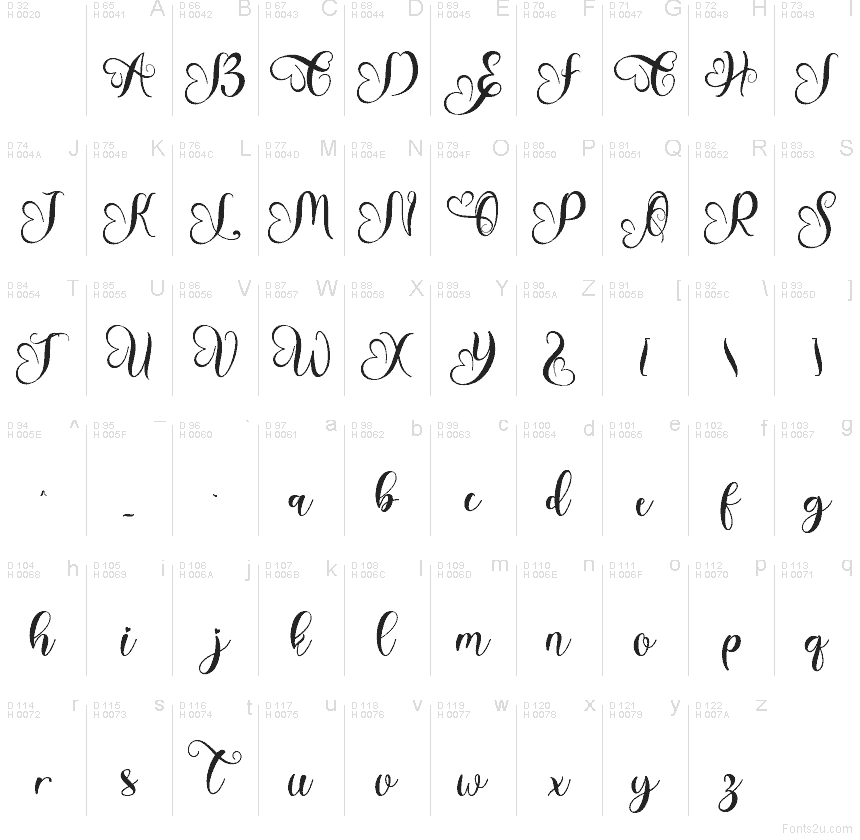 D 32 D 65 A D 66 B D 67 C D 68 D D 69 E D 70 F D 71 G D 72 H D 73 I
H 0020 H 0041 H 0042 H 0043 H 0044 H 0045 H 0046 H 0047 H 0048 H 0049
A B C D E F G H I
D 74 J D 75 K D 76 L D 77 M D 78 N D 79 O D 80 P D 81 Q D 82 R D 83 S
H 004A H 004B H 004C H 004D H 004E H 004F H 0050 H 0051 H 0052 H 0053
J K L M N O P Q R S
D 84 T D 85 U D 86 V D 87 W D 88 X D 89 Y D 90 Z D 91 [ D 92 \ D 93 ]
H 0054 H 0055 H 0056 H 0057 H 0058 H 0059 H 005A H 005B H 005C H 005D
T U V W X Y Z [ \ ]
D 94 ^ D 95 _ D 96 ` D 97 a D 98 b D 99 c D 100 d D 101 e D 102 f D 103 g
H 005E H 005F H 0060 H 0061 H 0062 H 0063 H 0064 H 0065 H 0066 H 0067
^ _ ` a b c d e f g
D 104 h D 105 i D 106 j D 107 k D 108 l D 109 m D 110 n D 111 o D 112 p D 113 q
H 0068 H 0069 H 006A H 006B H 006C H 006D H 006E H 006F H 0070 H 0071
h i j k l m n o p q
D 114 r D 115 s D 116 t D 117 u D 118 v D 119 w D 120 x D 121 y D 122 z
H 0072 H 0073 H 0074 H 0075 H 0076 H 0077 H 0078 H 0079 H 007A
r s t u v w x y z
Fonts2u.com